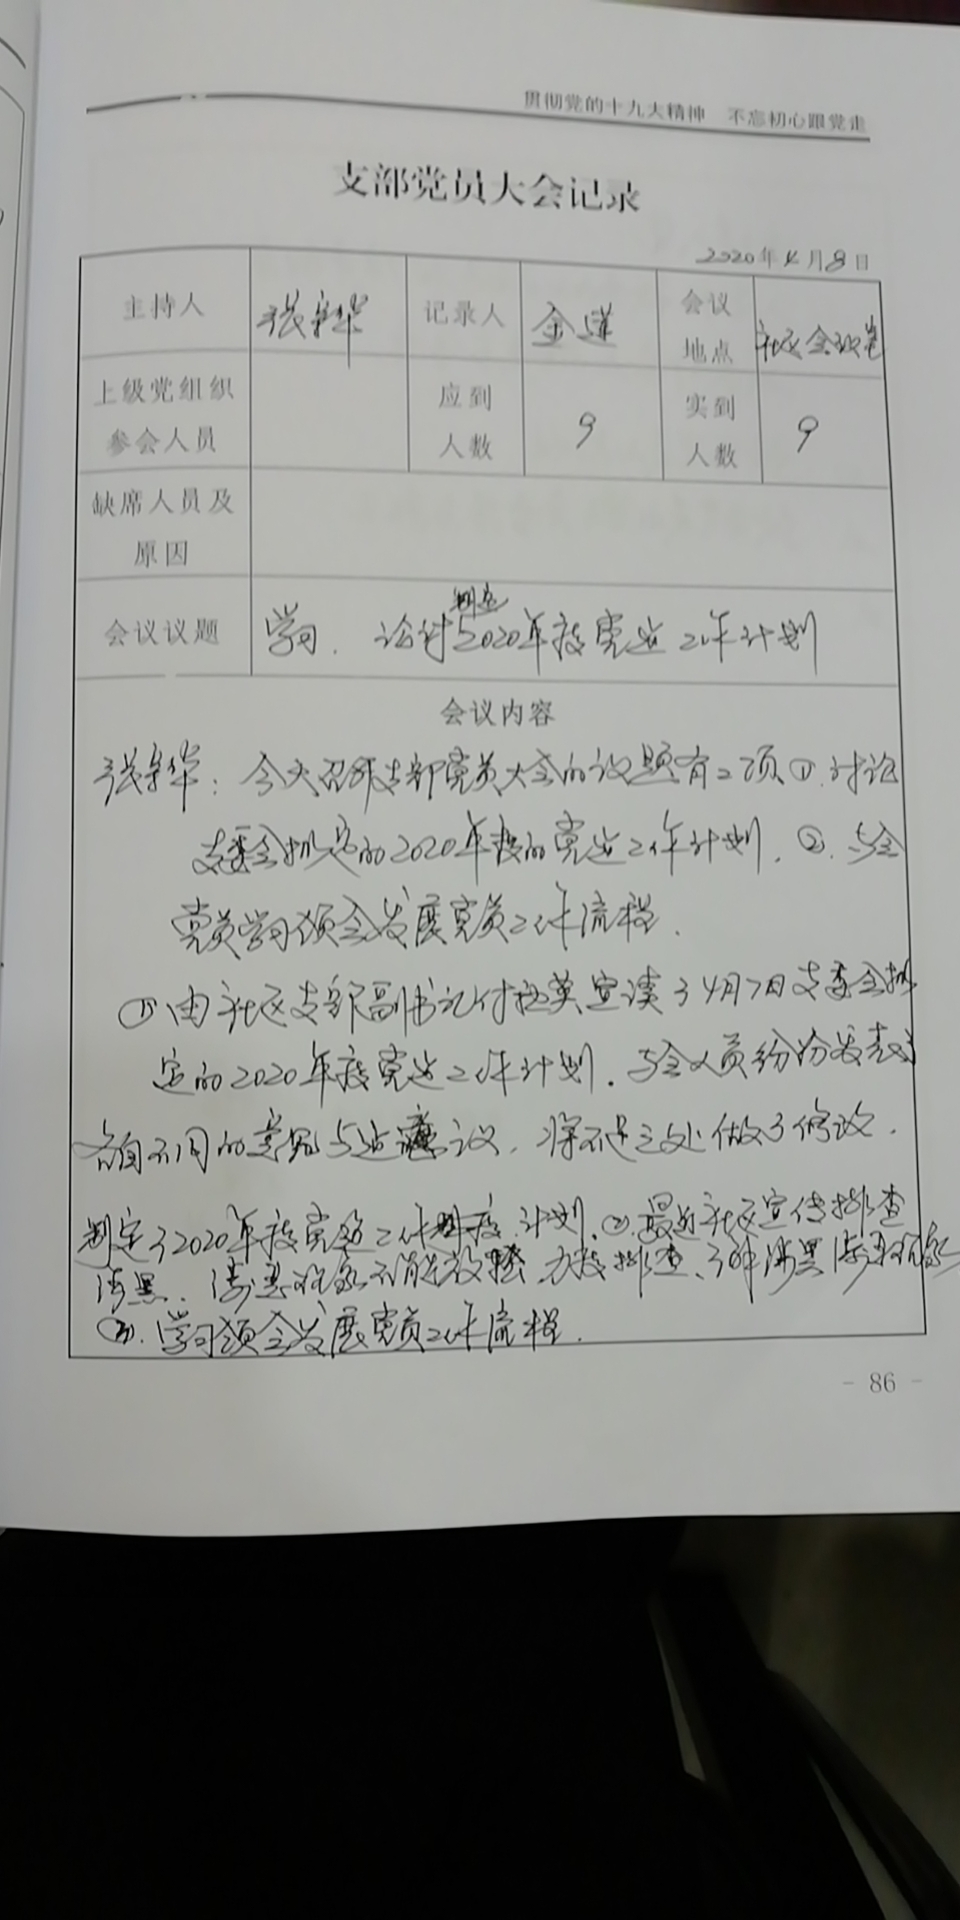 贯彻党的十九大精神 不忘初心跟党走
支部党员大会记录
2020年4月8日
主持人 张 华 记录人 金 会议地点 社区会议室
上级党组织参会人员 应到人数 9 实到人数 9
缺席人员及原因
制定
会议议题 学习、讨论2020年度党建工作计划
会议内容
张 华：今天召开支部党员大会的议题有2项①.讨论
支委会拟定的2020年度的党建工作计划.②.与会
党员学习领会发展党员工作流程.
①由社区支部副书记付 英宣读了4月7日支委会拟
定的2020年度党建工作计划.与会人员纷纷发表了
各自不同的意见与建议,将不足之处做了修改.
制定了2020年度党建工作计划.②最近社区宣传排查
涉黑、涉恶 不能放松,力度排查、了解涉黑涉恶
③.学习领会发展党员工作流程.
- 86 -